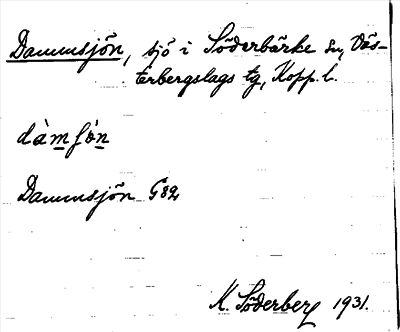 Dammsjön, sjö i Söderbärke sn, Väs-
terbergslags tg, Kopp. l.
dàmʃö̀n
Dammsjön G82
K. Söderberg 1931.